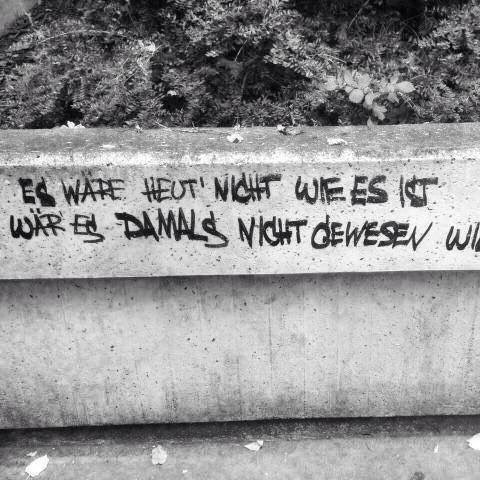 ES WÄRE HEUT' NICHT WIE ES IST
WÄR' ES DAMALS NICHT GEWESEN WI